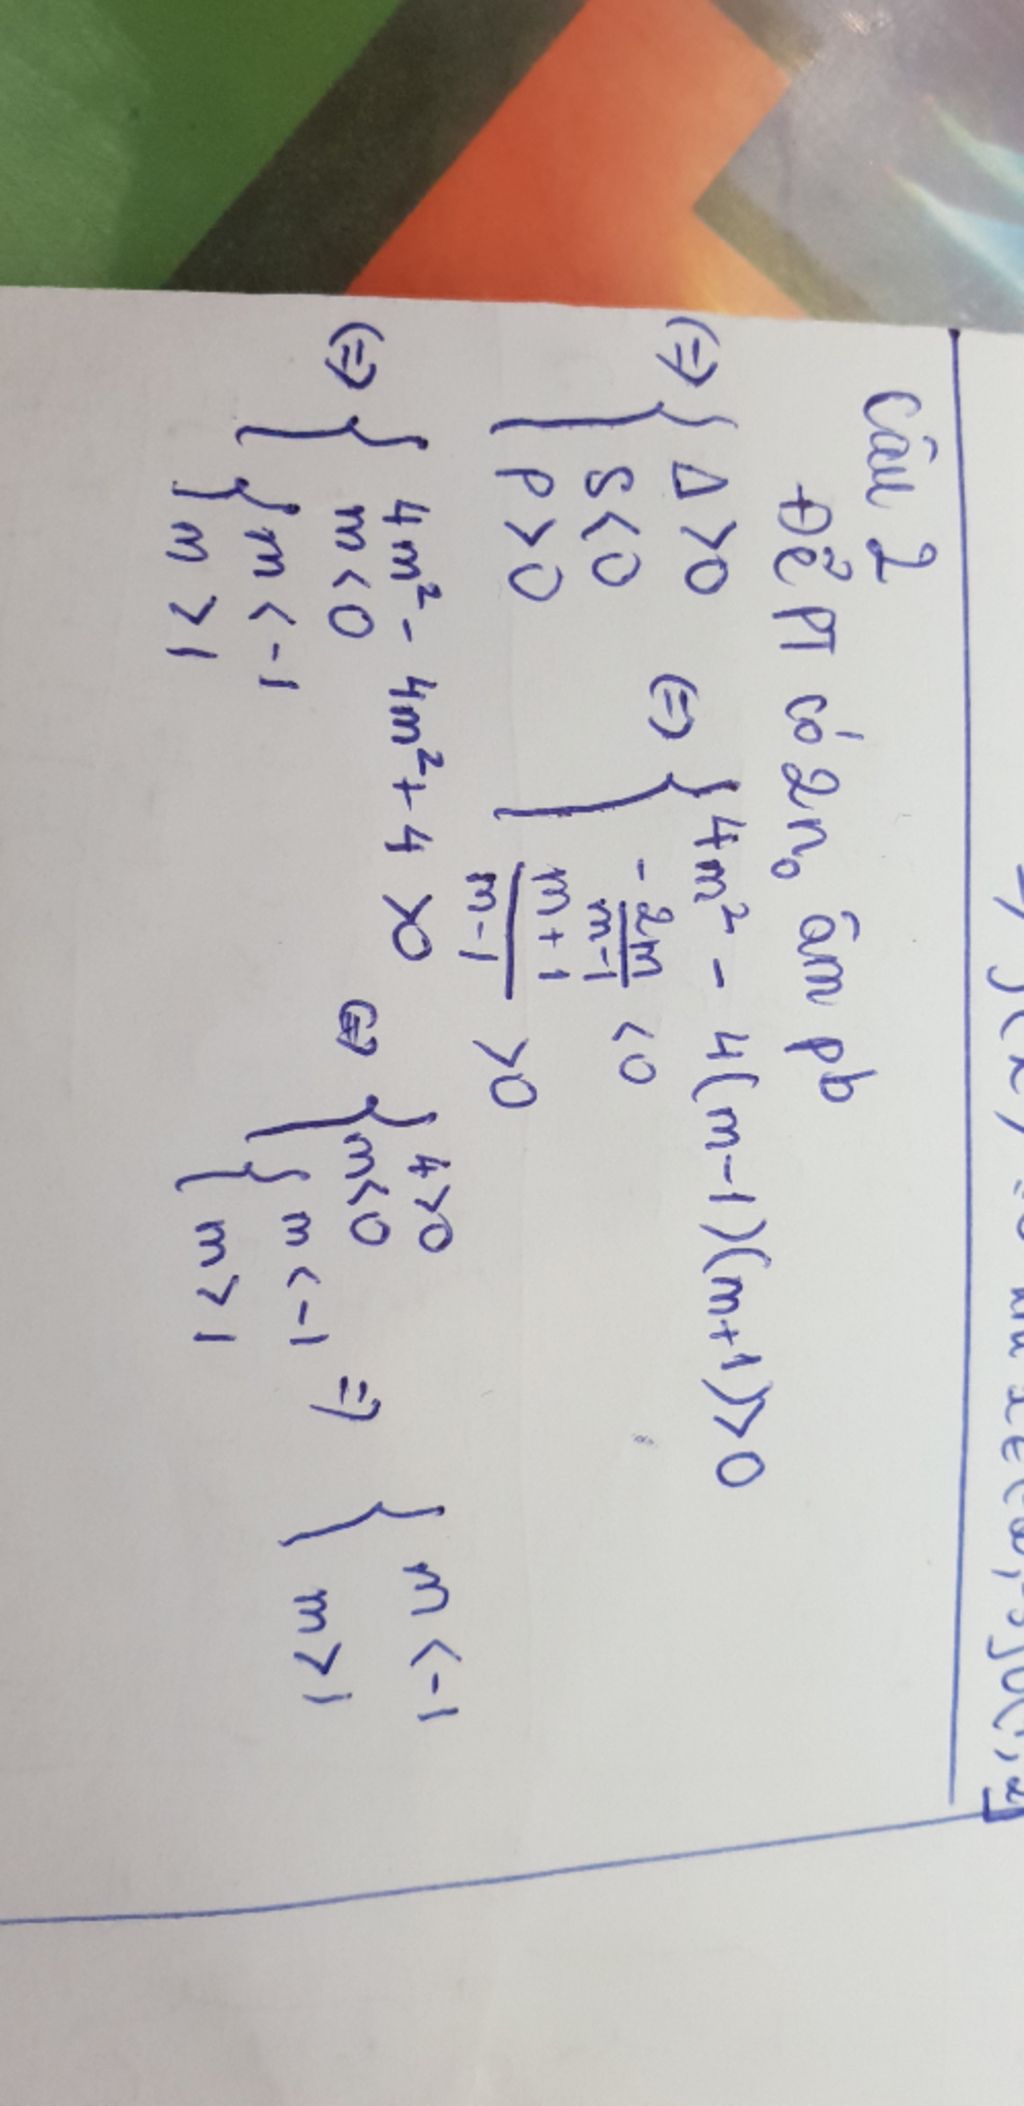 Câu 2
Để PT có 2 no âm pb
(=) { Δ > 0
S < 0
P > 0
(=) { 4m² - 4(m-1)(m+1) > 0
-2m/m-1 < 0
m+1/m-1 > 0
(=) { 4m² - 4m² + 4 > 0
m < 0
{ m < -1
m > 1
(=) { 4 > 0
m < 0
{ m < -1
m > 1
=> { m < -1
m > 1